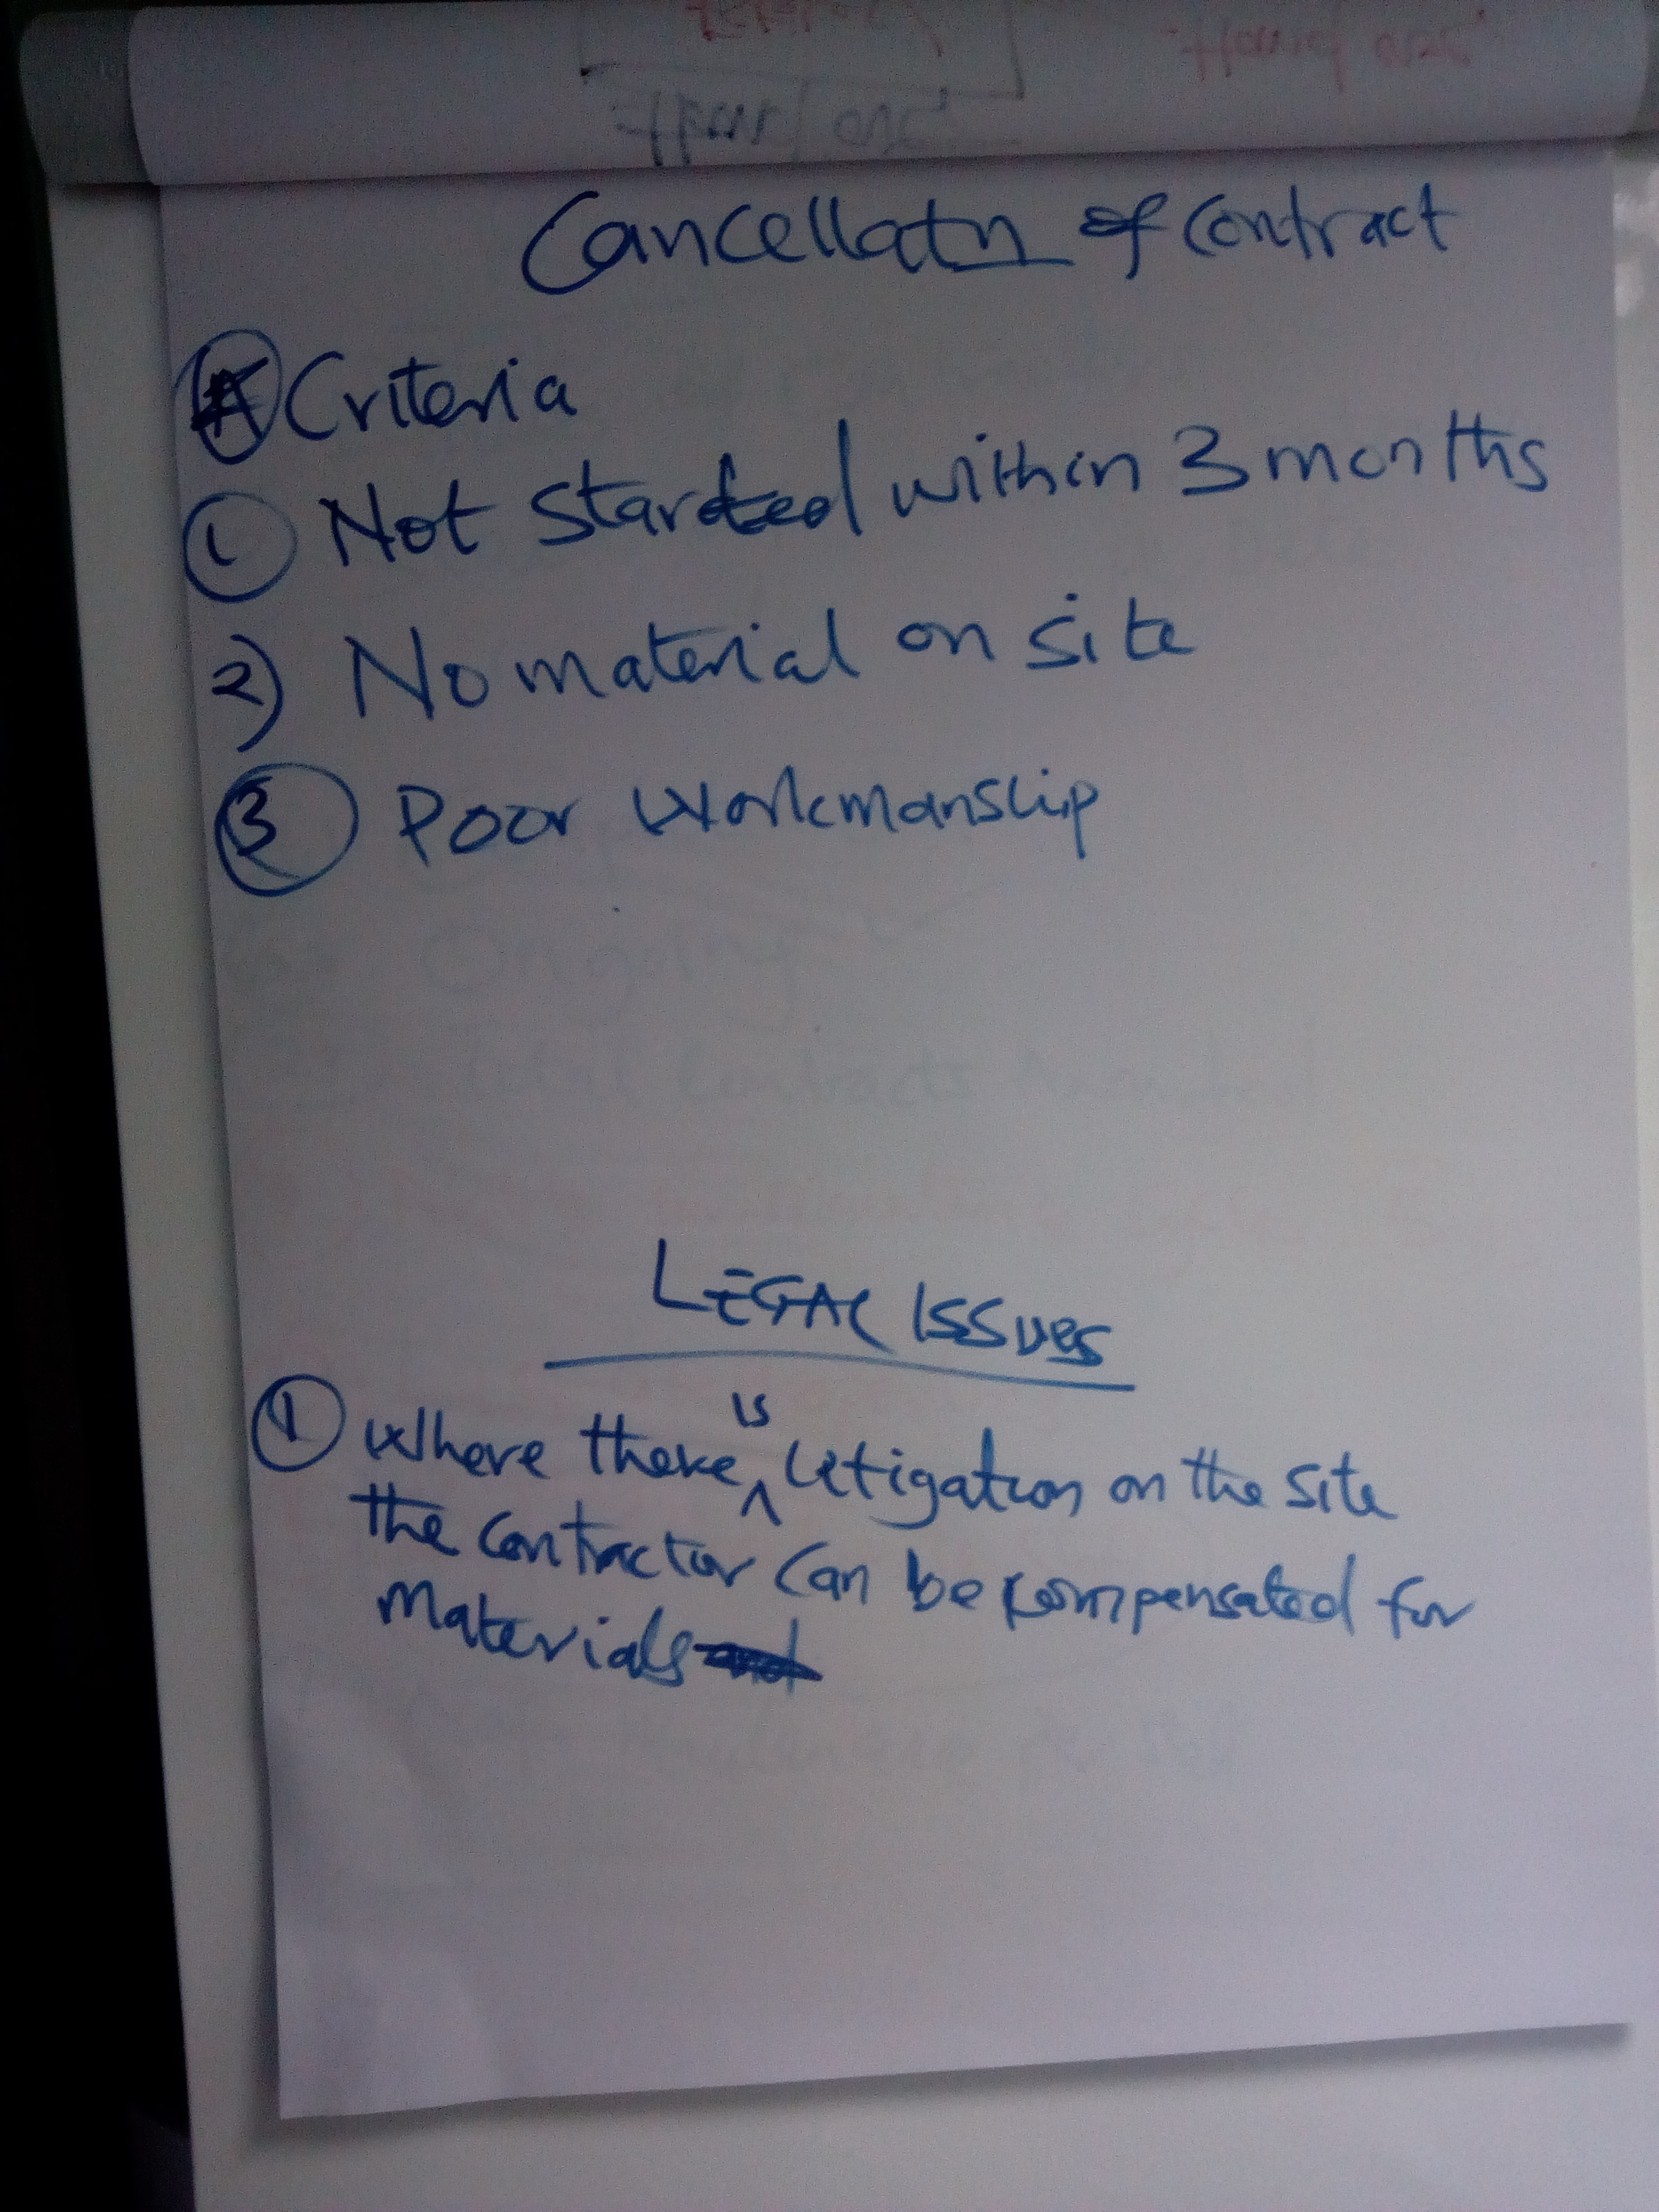 Cancellatn of contract
A Criteria
1 Not started within 3 months
2) No material on site
3 Poor workmanship
Ongoing
contracts
LEGAL ISSUES
1 Where there is litigation on the site
the contractor can be compensated for
materials